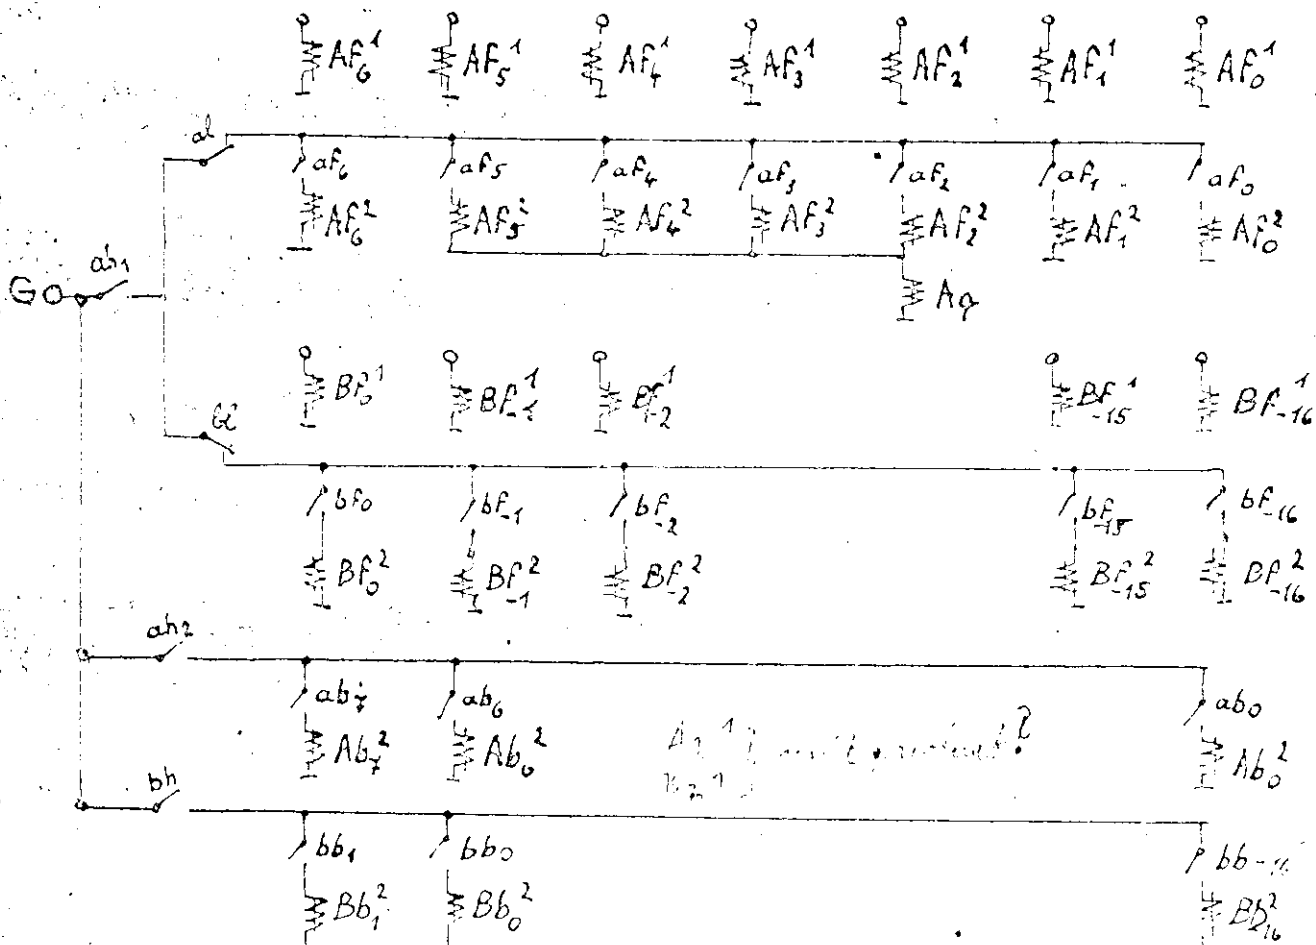 Af₆¹ Af₅¹ Af₄¹ Af₃¹ Af₂¹ Af₁¹ Af₀¹
al
af₆ af₅ af₄ af₃ af₂ af₁ af₀
Af₆² Af₅² Af₄² Af₃² Af₂² Af₁² Af₀²
G ah₁
Aq
Bf₀¹ Bf₋₁¹ Bf₋₂¹ Bf₋₁₅¹ Bf₋₁₆¹
bl
bf₀ bf₋₁ bf₋₂ bf₋₁₅ bf₋₁₆
Bf₀² Bf₋₁² Bf₋₂² Bf₋₁₅² Bf₋₁₆²
ah₂
ab₇ ab₆ ab₀
Ab₇² Ab₆² Ab₀²
bh
bb₁ bb₀ bb₋₁₆
Bb₁² Bb₀² Bb₁₆²